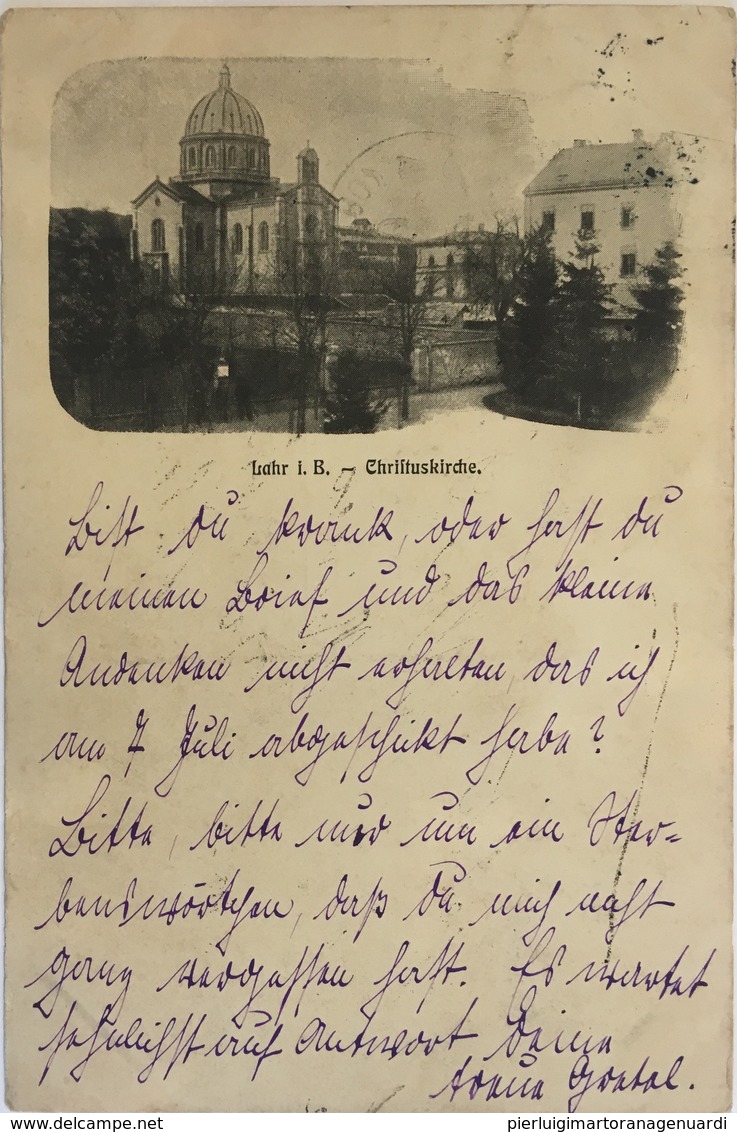 Lahr i. B. – Christuskirche.
Bist du krank, oder hast du
meinen Brief und das kleine
Andenken nicht erhalten, das ich
am 7 Juli abgeschickt habe?
Bitte, bitte nur um ein Ster-
benswörtchen, daß du mich nicht
ganz vergessen hast. Es wartet
sehnlichst auf Antwort Deine
treue Gretel.
delcampe.net
pierluigimartoranagenuardi